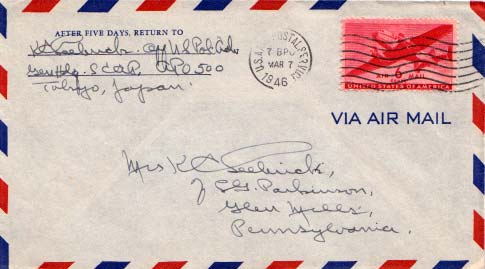 AFTER FIVE DAYS, RETURN TO
K C Seelnick
Gen Hdq. SCAP, APO 500
Tokyo, Japan.
U.S.A. POSTAL SERVICE
7 BPO
MAR 7
1946
6
AIR MAIL
UNITED STATES OF AMERICA
VIA AIR MAIL
Mrs K C
Parkinson,
Glen Mills,
Pennsylvania.